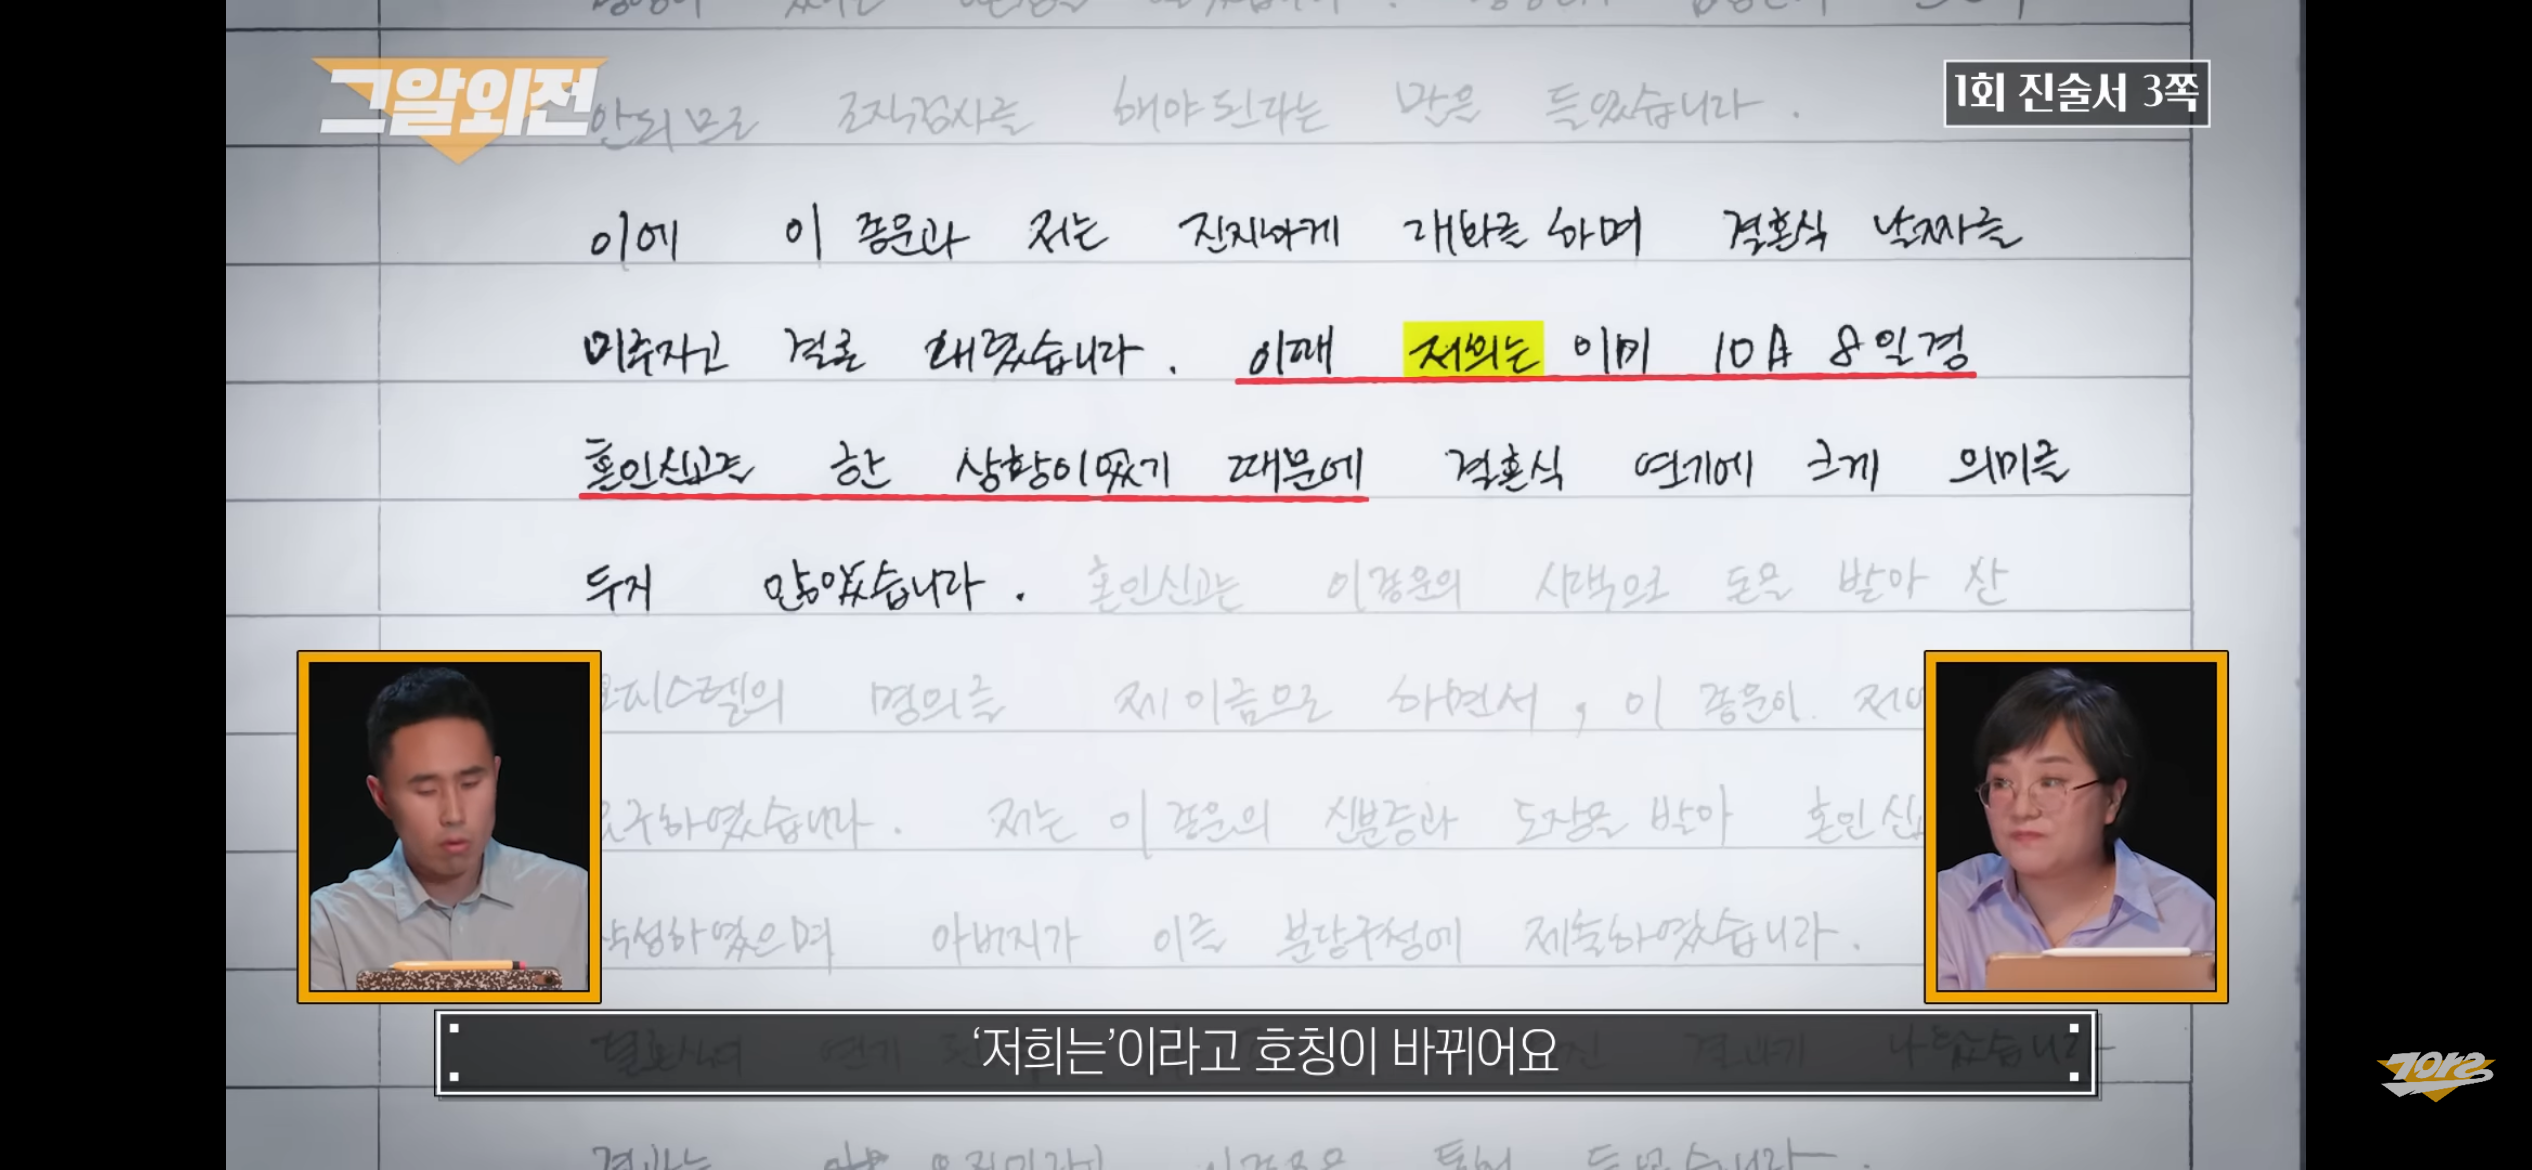 그알외전
1회 진술서 3쪽
안되므로 조직검사를 해야된다는 말은 들었습니다.
이에 이 종운과 저는 진지하게 대화를 하며 결혼식 날짜를
미루자고 결론 내렸습니다. 이때 저희는 이미 10月 8일경
혼인신고를 한 상황이었기 때문에 결혼식 연기에 크게 의미를
두지 않았습니다. 혼인신고는 이종운의 사택으로 돈을 받아 산
오피스텔의 명의를 제 이름으로 하면서, 이 종운이
요구하였습니다. 저는 이 종운의 신분증과 도장을 받아 혼인신
작성하였으며 아버지가 이를 분당구청에 제출하였습니다.
'저희는'이라고 호칭이 바뀌어요
그알